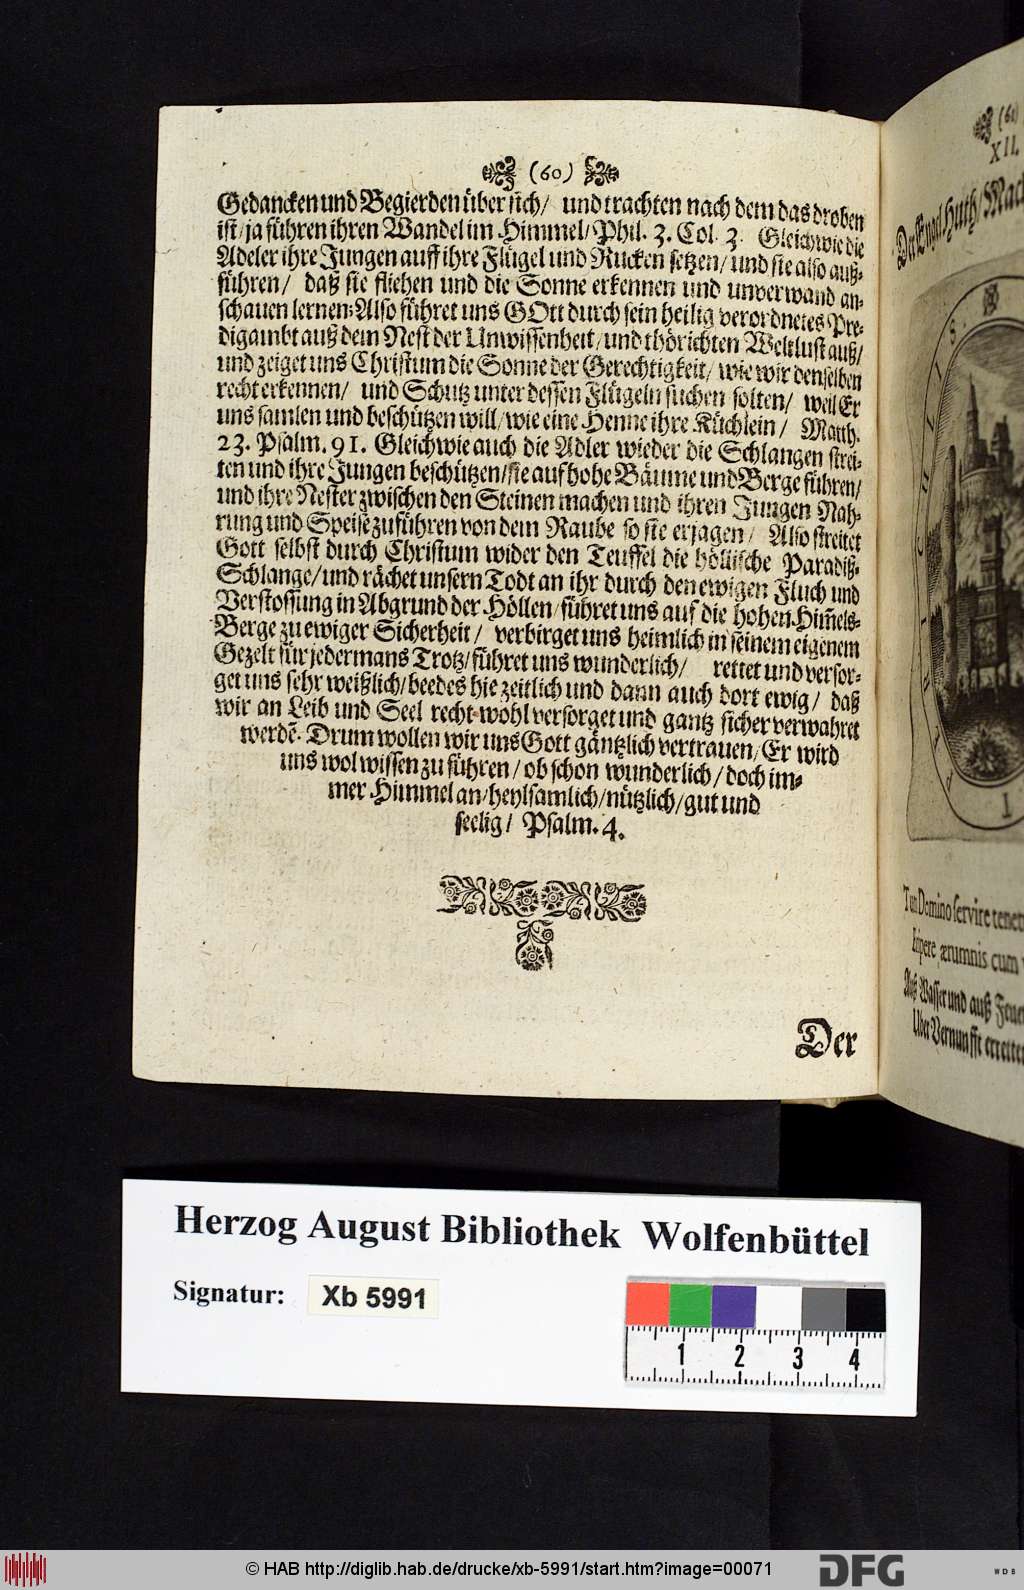 (60)
Gedancken und Begierden über sich/ und trachten nach dem das droben
ist/ ja führen ihren Wandel im Himmel/ Phil. 3. Col. 3. Gleich wie die
Adeler ihre Jungen auff ihre Flügel und Rucken setzen/ und sie also auß-
führen/ daß sie fliehen und die Sonne erkennen und unverwand an-
schauen lernen: Also führet uns GOtt durch sein heilig verordnetes Pre-
digambt auß dem Nest der Unwissenheit/ und thörichten Weltlust auß/
und zeiget uns Christum die Sonne der Gerechtigkeit/ wie wir denselben
recht erkennen/ und Schutz unter dessen Flügeln suchen solten/ weil Er
uns samlen und beschützen will/ wie eine Henne ihre Küchlein/ Matth.
23. Psalm. 91. Gleich wie auch die Adler wieder die Schlangen strei-
ten und ihre Jungen beschützen/ sie auf hohe Bäume und Berge führen/
und ihre Nester zwischen den Steinen machen und ihren Jungen Nah-
rung und Speise zuführen von dem Raube so sie erjagen/ Also streitet
Gott selbst durch Christum wider den Teuffel die höllische Paradiß-
Schlange/ und rächet unsern Todt an ihr durch den ewigen Fluch und
Verstossung in Abgrund der Höllen/ führet uns auf die hohen Him̃els-
Berge zu ewiger Sicherheit/ verbirget uns heimlich in seinem eigenem
Gezelt für jedermans Trotz/ führet uns wunderlich/ rettet und versor-
get uns sehr weißlich/ beedes hie zeitlich und dann auch dort ewig/ daß
wir an Leib und Seel recht wohl versorget und gantz sicher verwahret
werdē. Drum wollen wir uns Gott gäntzlich vertrauen/ Er wird
uns wol wissen zu führen/ ob schon wunderlich/ doch im-
mer Himmel an/ heylsamlich/ nützlich/ gut und
seelig/ Psalm. 4.
Der
(61)
XII.
Der Engel Huth/
Tun Domino servire
Eripere ærumnis cum
Auß Wasser und auß Feuer
Uber Vernunfft
Herzog August Bibliothek Wolfenbüttel
Signatur: Xb 5991
1 2 3 4
© HAB http://diglib.hab.de/drucke/xb-5991/start.htm?image=00071
DFG
WDB